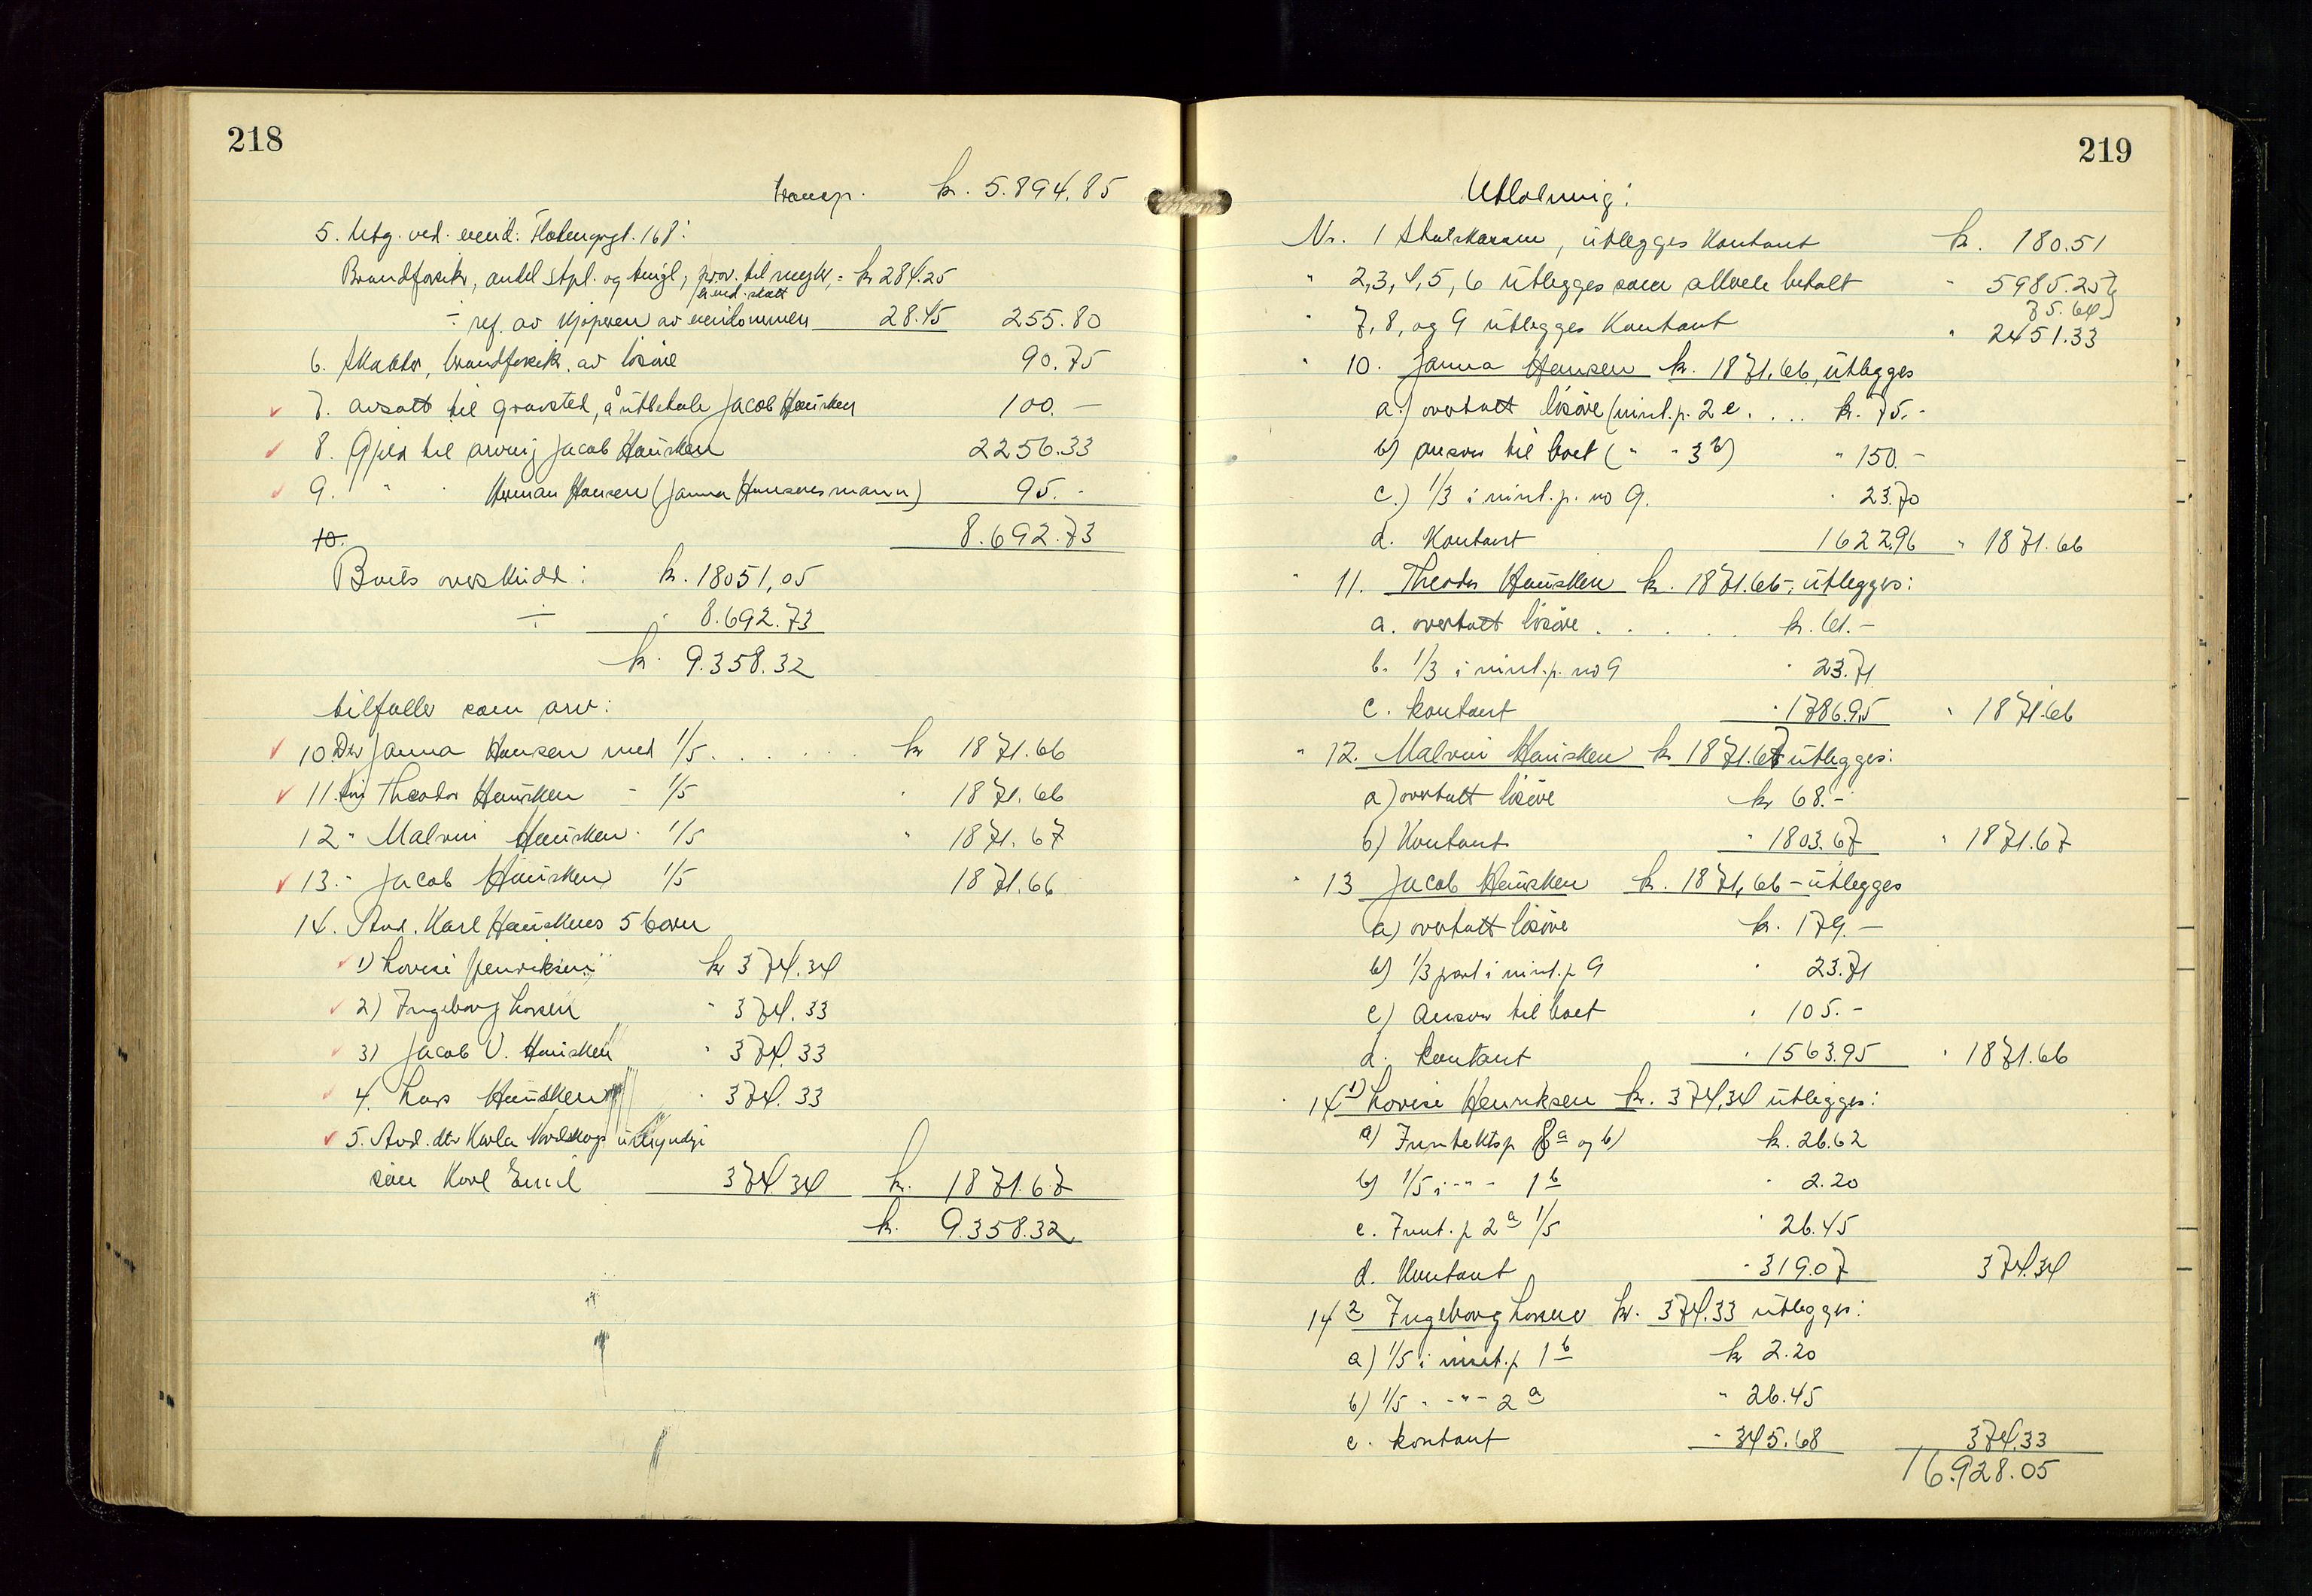 218
transp. kr. 5.894.85
5. Utg. ved. eiend. 168:
Brandforsik, andel stpl. og tingl, prov. til megler, = kr 284.25
eiend. skatt
÷ ref. av kjøperen av eiendommen 28.45 255.80
6. Skatter, brandforsik. av løsøre 90.75
7. avsatt til gravsted, å utbetale Jacob Hausken 100.—
8. Gjeld til arving Jacob Hausken 2256.33
9. " " Herman Hansen (Janna Hansens mann) 95.-
10.
8.692.73
Boets overskudd: kr. 18051,05
÷ " 8.692.73
kr. 9.358.32
tilfaller som arv:
10. Dtr Janna Hansen med 1/5 . . . . kr 1871.66
11. Theodor Hausken - 1/5 " 1871.66
12 " Malvin Hausken - 1/5 " 1871.67
13. " Jacob Hausken 1/5 1871.66
14. Avd. Karl Hauskens 5 barn
1) Lovise Henriksen kr 374.34
2) Ingeborg Larsen " 374.33
3) Jacob V. Hausken " 374.33
4. Lars Hausken " 374.33
5. Avd. dtr Karla umyndige
søn Karl Emil 374.34 kr. 1871.67
kr. 9.358.32
219
Utlodning:
Nr. 1 Skifteskassen, utlegges kontant kr. 180.51
" 2,3,4,5,6 utlegges som allerede betalt " 5985.25
75.64
" 7, 8, og 9 utlegges kontant " 2451.33
" 10. Janna Hansen kr. 1871,66, utlegges
a.) overtatt løsøre (innt.p. 2 e. . . . kr. 75.-
b) ansvar til boet ( " " 3 b) " 150.-
c.) 1/3 i innt.p. no 9. " 23.70
d. Kontant 1622.96 " 1871.66
" 11. Theodor Hausken kr. 1871.66-, utlegges:
a. overtatt løsøre . . . . kr. 61.-
b. 1/3 i innt.p. no 9 " 23.71
c. kontant " 1786.95 " 1871.66
" 12. Malvin Hausken kr 1871.67 utlegges:
a) overtatt løsøre kr 68.-
b) Kontant " 1803.67 " 1871.67
" 13 Jacob Hausken kr. 1871,66 - utlegges
a) overtatt løsøre kr. 179.-
b) 1/3 part i innt.p 9 " 23.71
c) Ansvar til boet " 105.-
d. kontant " 1563.95 " 1871.66
" 14 1) Lovise Henriksen kr. 374,34 utlegges:
a) Inntektsp 8 a og b) kr. 26.62
b) 1/5 i - " - 1 b " 2.20
c. Innt.p 2 a 1/5 " 26.45
d. Kontant " 319.07 374.34
14 2 Ingeborg Larsen kr. 374.33 utlegges:
a) 1/5 i innt.p 1 b kr 2.20
b) 1/5 - - " - 2 a " 26.45
c. kontant " 345.68 374.33
16.928.05